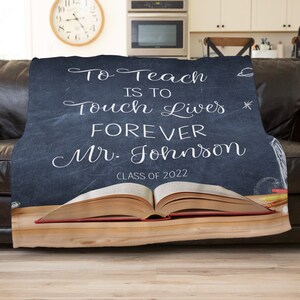 To Teach
IS TO
Touch Lives
FOREVER
Mr. Johnson
CLASS OF 2022